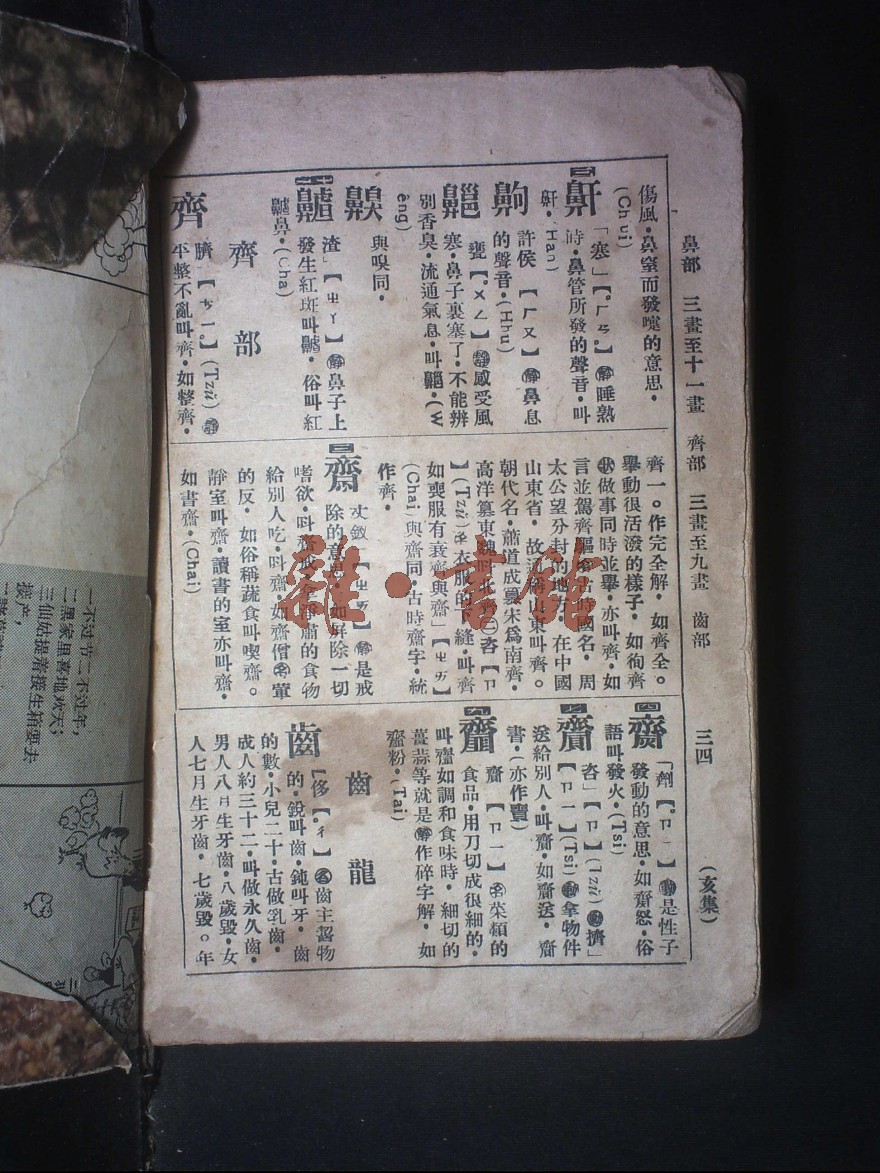 鼻部 三畫至十一畫 齊部 三畫至九畫 齒部 三四 (亥集)
傷風・鼻窒而發嚏的意思・
(Chui)
三 鼾 「寒」【ㄏㄢ】睡熟
時・鼻管所發的聲音・叫
鼾・(Han)
齁 許侯【ㄏㄡ】鼻息
的聲音・(Hhu)
齆 甕【ㄨㄥ】感受風
寒・鼻子裏塞了・不能辨
別香臭・流通氣息・叫齆・(W
êng)
齅 與嗅同・
十一 齇 渣」【ㄓㄚ】鼻子上
發生紅斑叫齇・俗叫紅
齇鼻・(Cha)
齊部
齊 臍」(Tzü)
平整不亂叫齊・如整齊・
齊一。作完全解・如齊全。
舉動很活潑的樣子・如徇齊
做事同時並舉・亦叫齊・如
言並駕齊驅 古時國名・周
太公望分封的地方・在中國
山東省・故 稱山東叫齊。
朝代名・蕭道成 宋爲南齊・
高洋篡東魏叫北齊 【ㄗ
】(Tzü)衣服的下縫・叫齊
如喪服有衰齊與齋」【ㄓㄞ】
(Chai 與齋同・古時齋字・統
作齊・
三 齋 【ㄓㄞ】是戒
除的意思・如屏除一切
嗜欲・叫齋戒 肅的食物
給別人吃・叫齋・如齋僧 葷
的反・如俗稱蔬食叫喫齋。
靜室叫齋・讀書的室亦叫齋・
如書齋・(Chai)
四 齌 「劑【ㄗㄧ】是性子
發動的意思・如齌怒・俗
語叫發火・(Tsi)
七 齎 (Tzü) 擠」
【ㄗㄧ】(Tsi)拿物件
送給別人・叫齎・如齎送・齎
書・(亦作賷)
九 齏 齋【ㄗㄧ】菜類的
食品・用刀切成很細的・
叫齏如調和食味時・細切的
薑蒜等就是 作碎字解・如
齏粉・(Tai)
齒龍
齒 侈【ㄔ】齒主齧物
的・銳叫齒・鈍叫牙・齒
的數・小兒二十・古做乳齒・
成人約三十二・叫做永久齒・
男人八月生牙齒・八歲毀・女
人七月生牙齒・七歲毀。年
雜・書館
一不过节二不过年，
二黑家里喜地欢天；
三仙姑提着接生箱要去
接产，